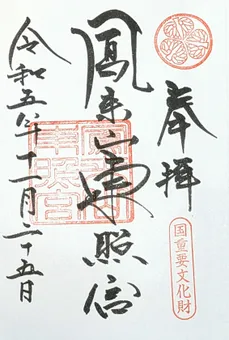 奉拝
国重要文化財
鳳来山東照宮
令和五年十一月二十五日